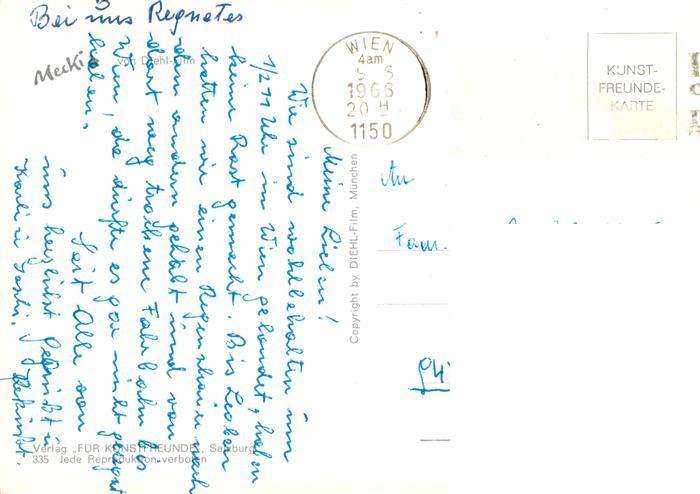 Bei uns Regnetes
Mecki
von Diehl-Film
WIEN
4am
1966
20 H
1150
KUNST-
FREUNDE-
KARTE
Meine Lieben!
Wir sind wohlbehalten um
1/2 11 Uhr in Wien gelandet, haben
keine Rast gemacht. Bis Leoben
hatten wir einen Regenschauer nach
dem andern gehabt und von
dort weg trockene Fahrbahn bis
Wien, da dürfte es gar nicht geregnet
haben.
Seit Alle von
uns herzlichst gegrüßt u
geküsst.
Karli u
An
Fam.
Copyright by DIEHL-Film, München
Verlag „FÜR KUNSTFREUNDE", Salzburg
335 Jede Reproduktion verboten